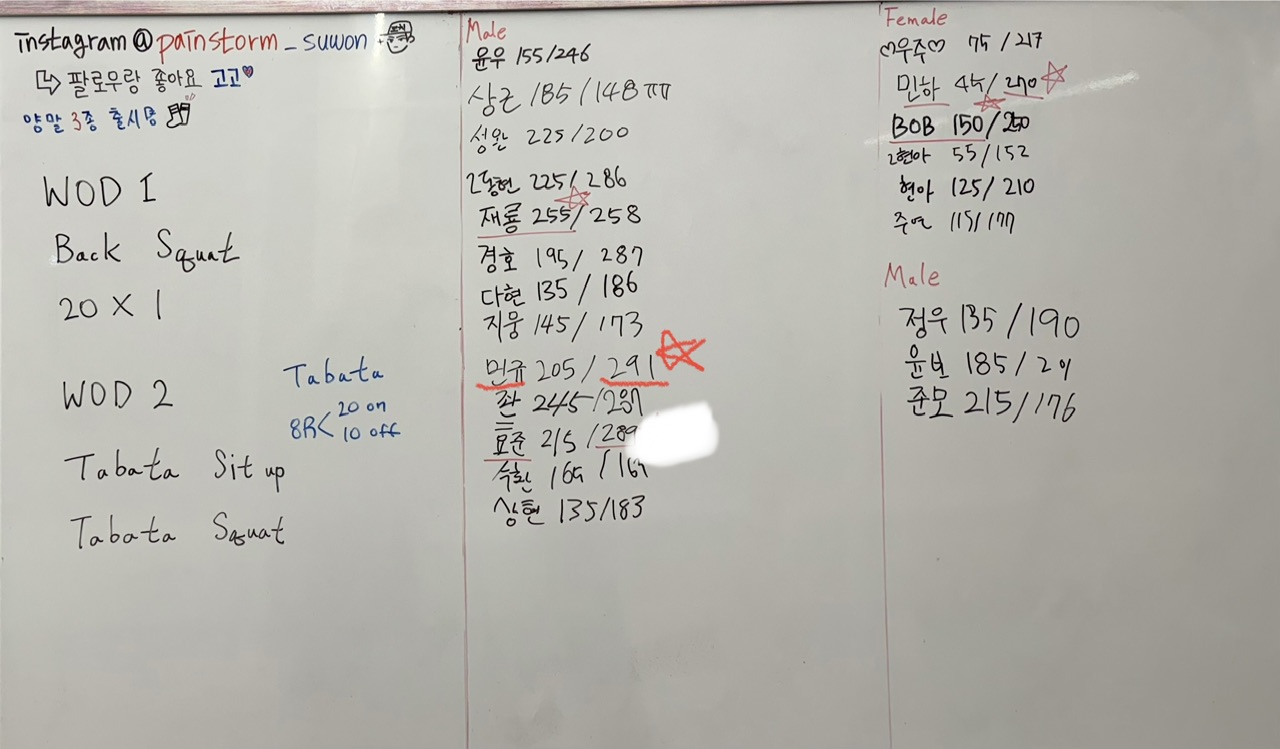 instagram@painstorm_suwon
팔로우랑 좋아요 고고
양말 3종 출시중
WOD 1
Back Squat
20 X 1
WOD 2
Tabata
8R< 20 on
10 off
Tabata Sit up
Tabata Squat
Male
윤우 155/246
상근 185/148ㅠㅠ
성완 225/200
2동현 225/286
재룡 255/258
경호 195/287
다현 135/186
지웅 145/173
민규 205/291
좐 245/287
표준 215/289
수환 165/165
상현 135/183
Female
♡우주♡ 75/217
민하 45/270
BOB 150/250
2현아 55/152
현아 125/210
주연 115/177
Male
정우 135/190
윤보 185/2
준모 215/176